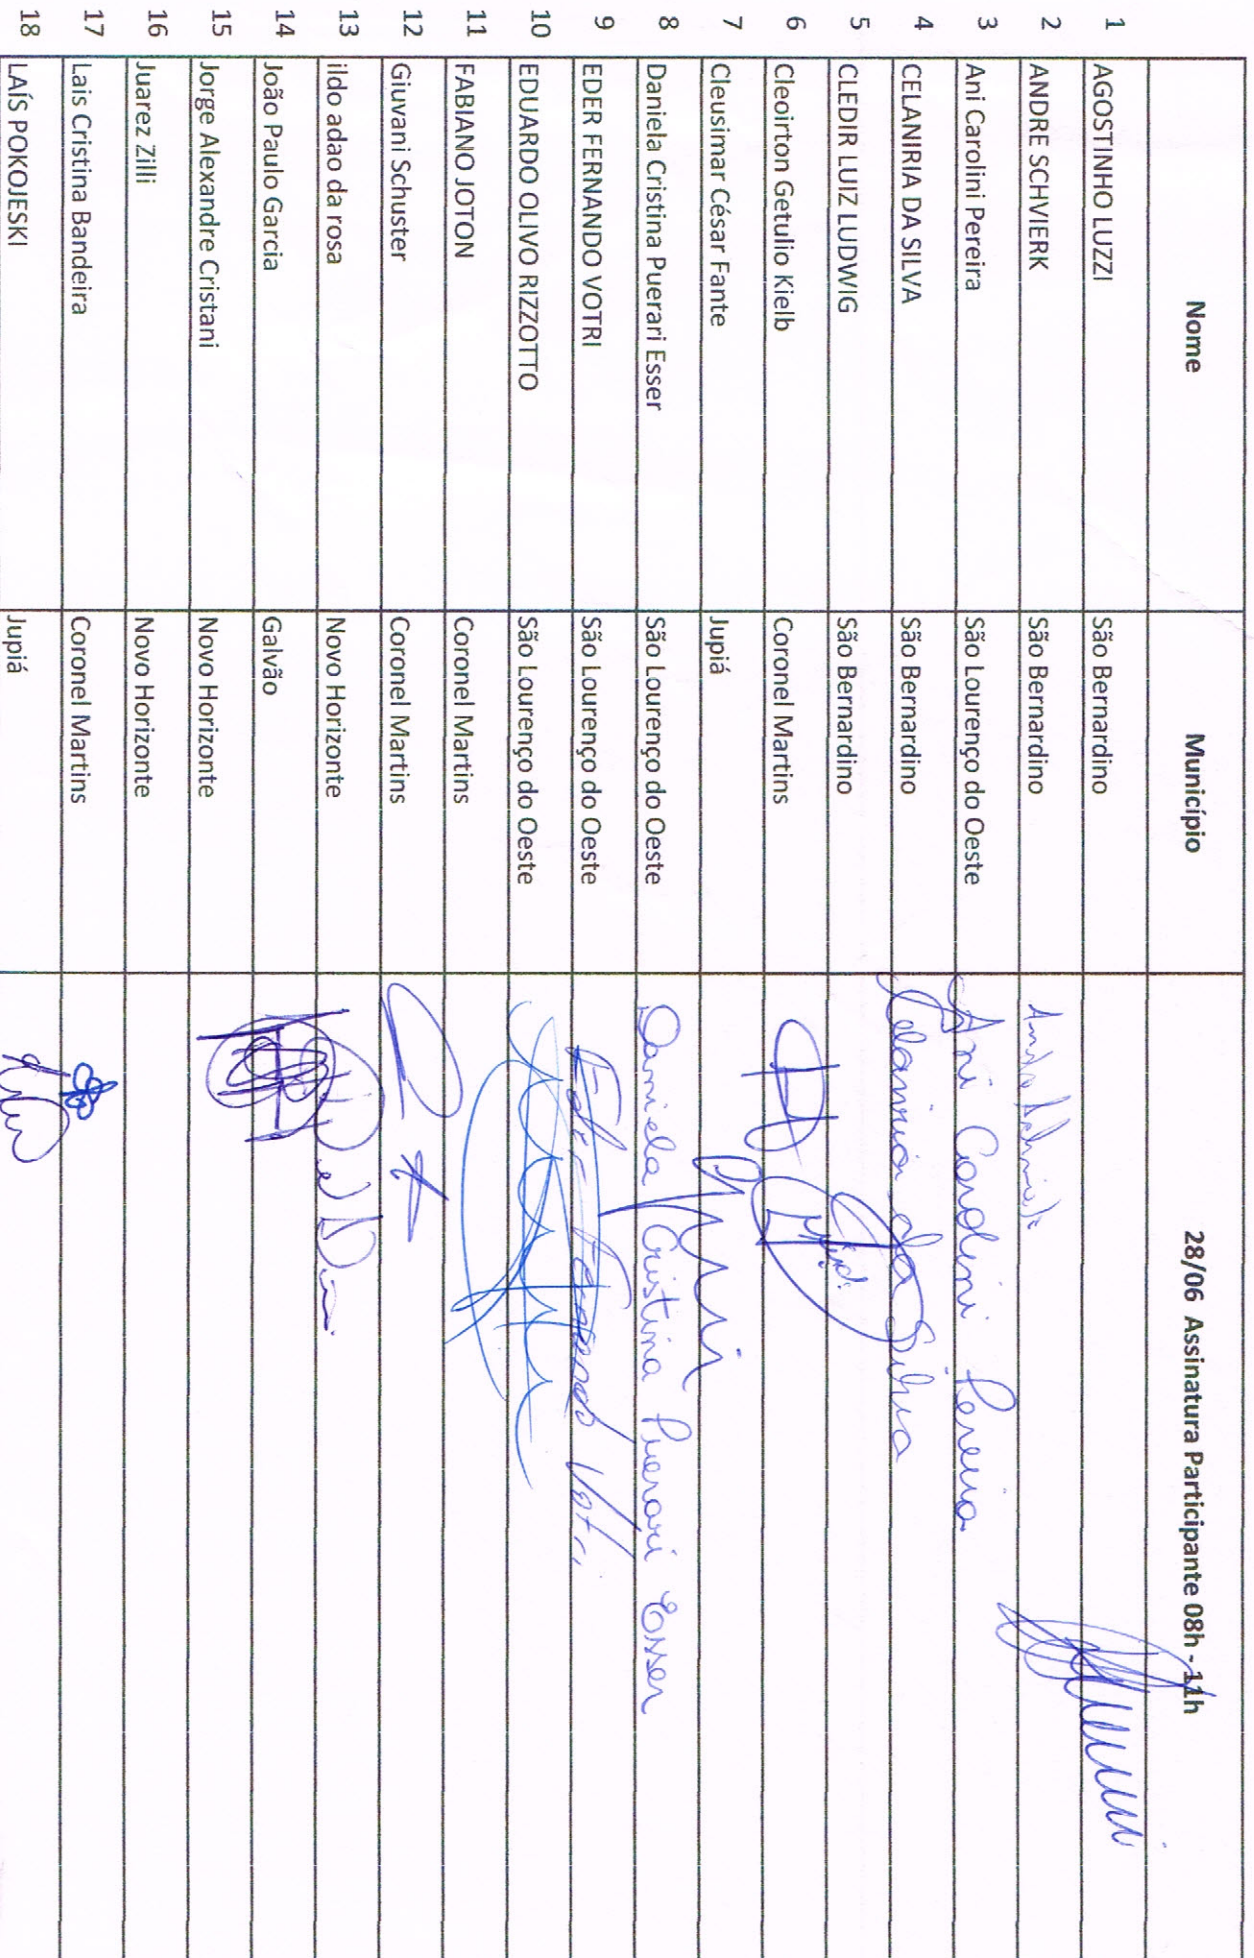 Nome Município 28/06 Assinatura Participante 08h - 11h
1 AGOSTINHO LUZZI São Bernardino
2 ANDRE SCHVIERK São Bernardino
3 Ani Carolini Pereira São Lourenço do Oeste Ani Carolini Pereira
4 CELANIRIA DA SILVA São Bernardino Celaniria da Silva
5 CLEDIR LUIZ LUDWIG São Bernardino
6 Cleoirton Getulio Kielb Coronel Martins
7 Cleusimar César Fante Jupiá
8 Daniela Cristina Puerari Esser São Lourenço do Oeste Daniela Cristina Puerari Esser
9 EDER FERNANDO VOTRI São Lourenço do Oeste Eder Fernando Votri
10 EDUARDO OLIVO RIZZOTTO São Lourenço do Oeste
11 FABIANO JOTON Coronel Martins
12 Giuvani Schuster Coronel Martins
13 ildo adao da rosa Novo Horizonte
14 João Paulo Garcia Galvão
15 Jorge Alexandre Cristani Novo Horizonte
16 Juarez Zilli Novo Horizonte
17 Lais Cristina Bandeira Coronel Martins
18 LAÍS POKOJESKI Jupiá